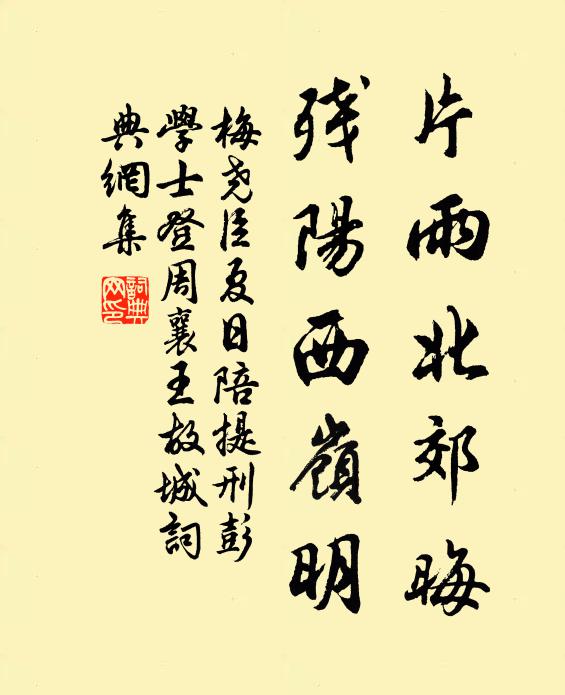 片雨北郊晦
殘陽西嶺明
梅堯臣夏日陪提刑彭
學士登周襄王故城詞
典網集
詞典網印